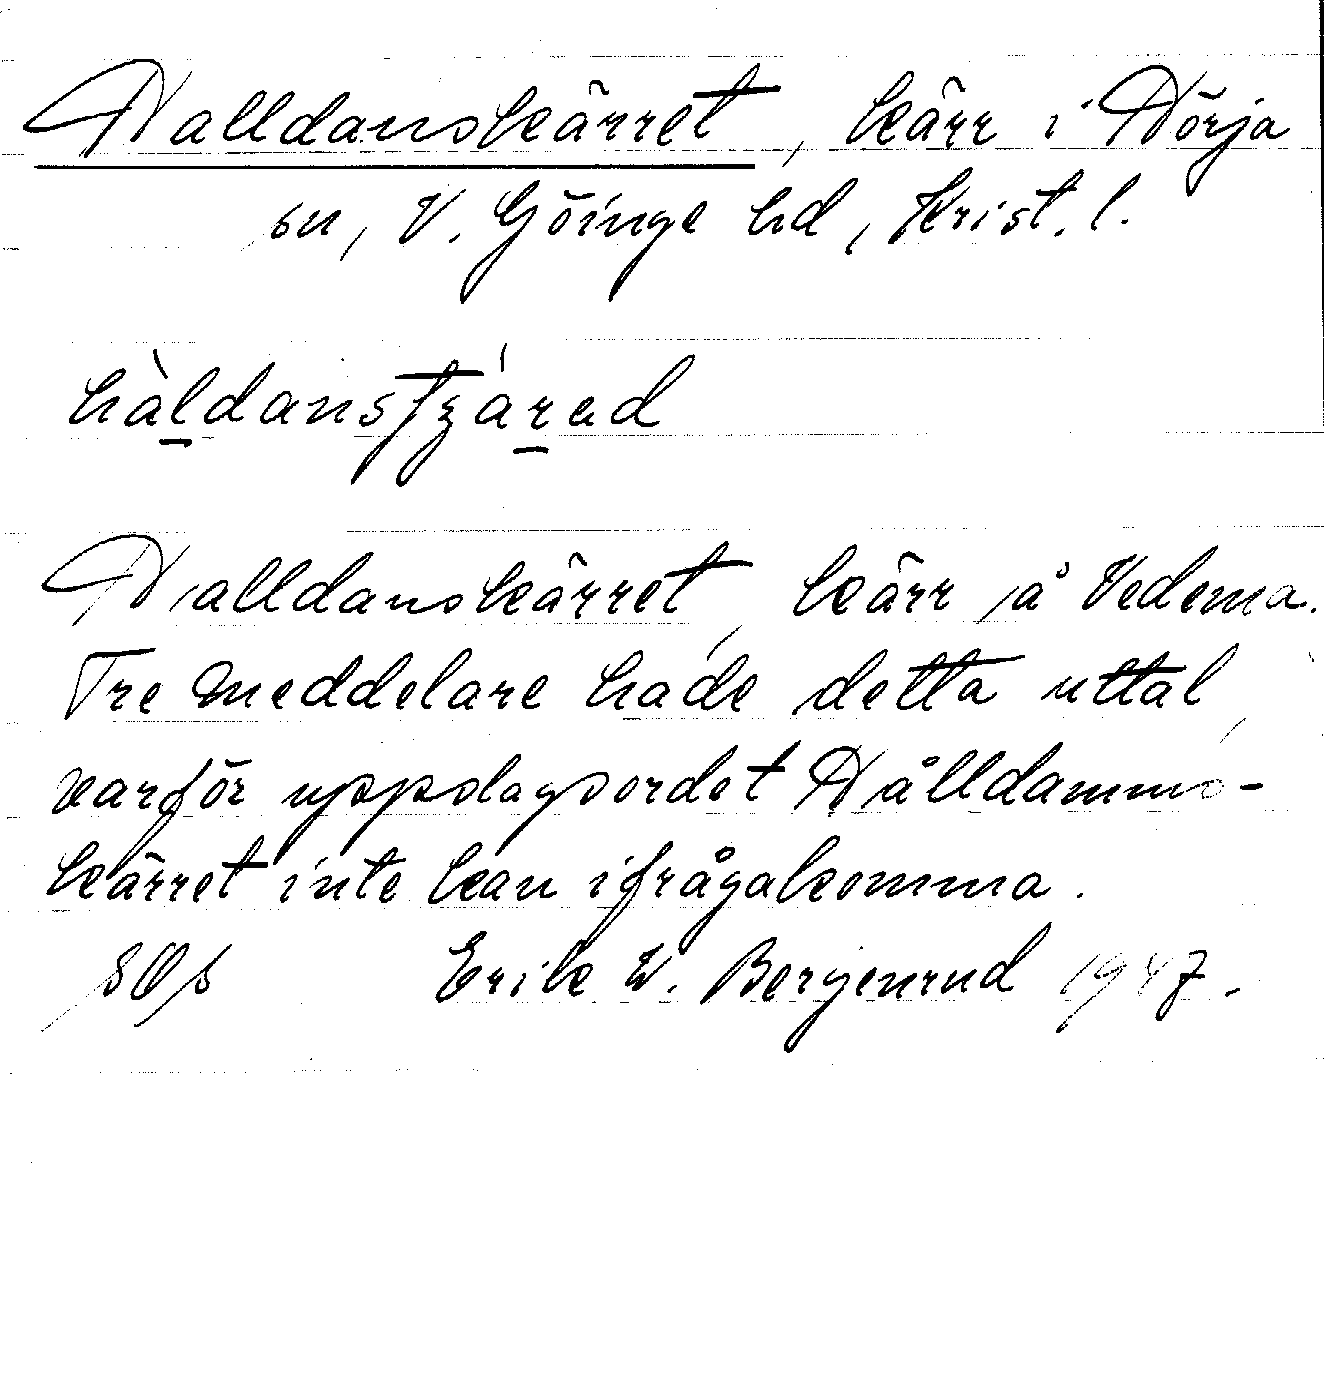 Halldanskärret, kärr i Hörja
sn, V. Göinge hd, Krist. l.
hàldansꞇȷárəd
Halldanskärret, kärr å Vedema.
Tre meddelare hade detta uttal,
varför uppslagsordet Hålldamms-
kärret inte kan ifrågakomma.
SOS Erik W. Bergenrud 1947.